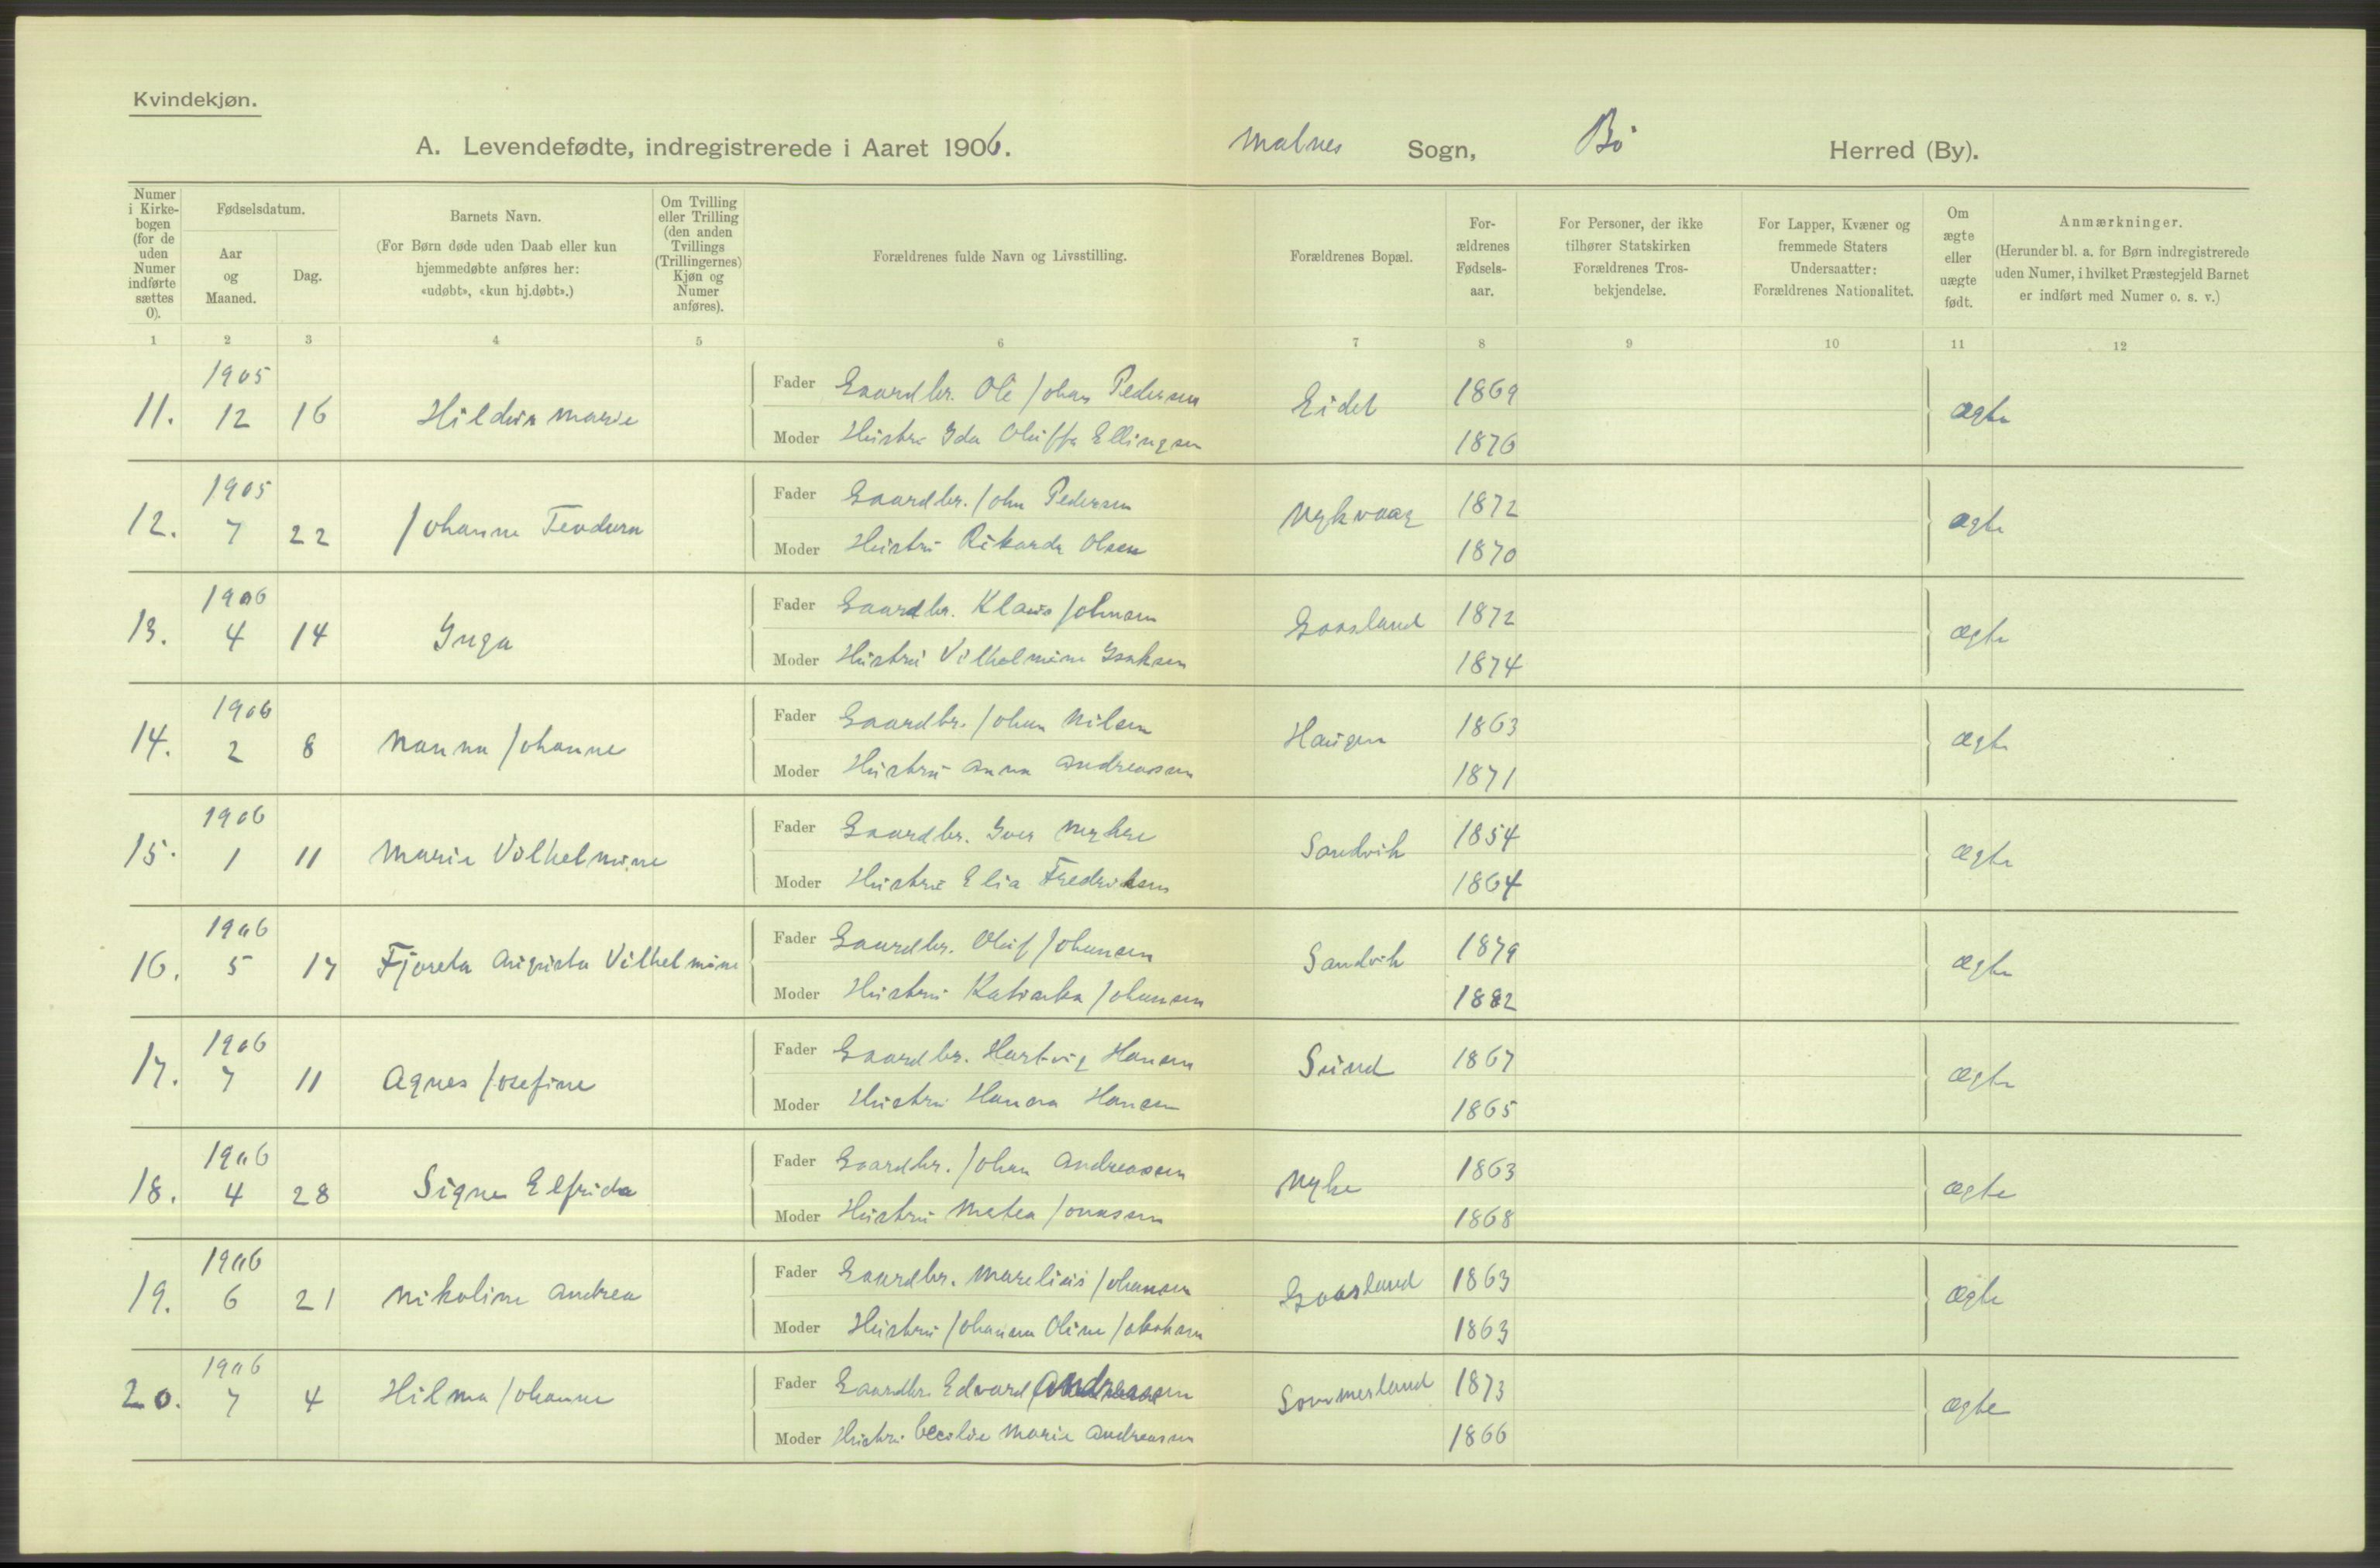 Kvindekjøn.
A. Levendefødte, indregistrerede i Aaret 1906. Malnes Sogn, Bö Herred (By).
Numer i Kirkebogen (for de uden Numer indførte sættes 0).
Fødselsdatum.
Aar og Maaned.
Dag.
Barnets Navn.
(For Børn døde uden Daab eller kun hjemmedøbte anføres her: «udøbt», «kun hj.døbt».)
Om Tvilling eller Trilling (den anden Tvillings (Trillingernes) Kjøn og Numer anføres).
Forældrenes fulde Navn og Livsstilling.
Forældrenes Bopæl.
Forældrenes Fødselsaar.
For Personer, der ikke tilhører Statskirken Forældrenes Trosbekjendelse.
For Lapper, Kvæner og fremmede Staters Undersaatter: Forældrenes Nationalitet.
Om ægte eller uægte født.
Anmærkninger.
(Herunder bl. a. for Børn indregistrerede uden Numer, i hvilket Præstegjeld Barnet er indført med Numer o. s. v.)
1 2 3 4 5 6 7 8 9 10 11 12
11. 1905 12 16 Hildur Marie
Fader Gaardbr. Ole Johan Pedersen Eidet 1869 ægte
Moder Hustru Ida Oluffa Ellingsen 1876
12. 1905 7 22 Johanne Teodora
Fader Gaardbr. John Pedersen Nykvaag 1872 ægte
Moder Hustru Rikarda Olsen 1870
13. 1906 4 14 Inga
Fader Gaardbr. Klaus Johnsen Gaasland 1872 ægte
Moder Hustru Vilhelmine Isaksen 1874
14. 1906 2 8 Nanna Johanne
Fader Gaardbr. Johan Nilsen Haugen 1863 ægte
Moder Hustru Anna Andreassen 1871
15. 1906 1 11 Marie Vilhelmine
Fader Gaardbr. Iver Myhre Sandvik 1854 ægte
Moder Hustru Elia Fredriksen 1864
16. 1906 5 17 Fjoreta Augusta Vilhelmine
Fader Gaardbr. Oluf Johansen Sandvik 1879 ægte
Moder Hustru Johansen 1882
17. 1906 7 11 Agnes Josefine
Fader Gaardbr. Hartvig Hansen Sund 1867 ægte
Moder Hustru Hanna Hansen 1865
18. 1906 4 28 Signe Elfrida
Fader Gaardbr. Johan Andreassen Nyke 1863 ægte
Moder Hustru Matea Jonassen 1868
19. 1906 6 21 Nikoline Andrea
Fader Gaardbr. Marelius Johansen Gaasland 1863 ægte
Moder Hustru Johanna Oline Jakobsen 1863
20. 1906 7 4 Hilma Johanne
Fader Gaardbr. Edvard Andreassen Sommerland 1873 ægte
Moder Hustru Cecilie Marie Andreassen 1866